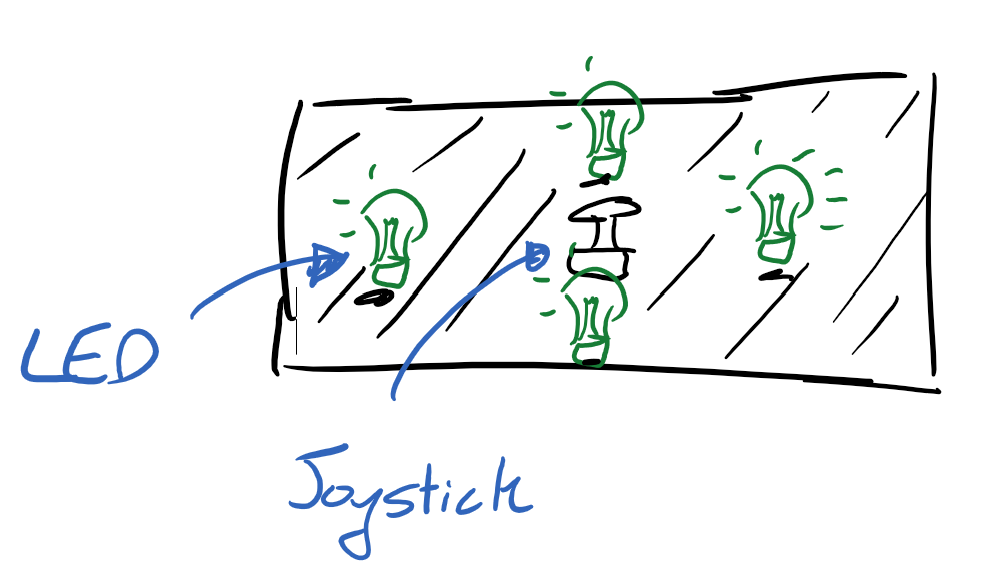 LED
Joystick